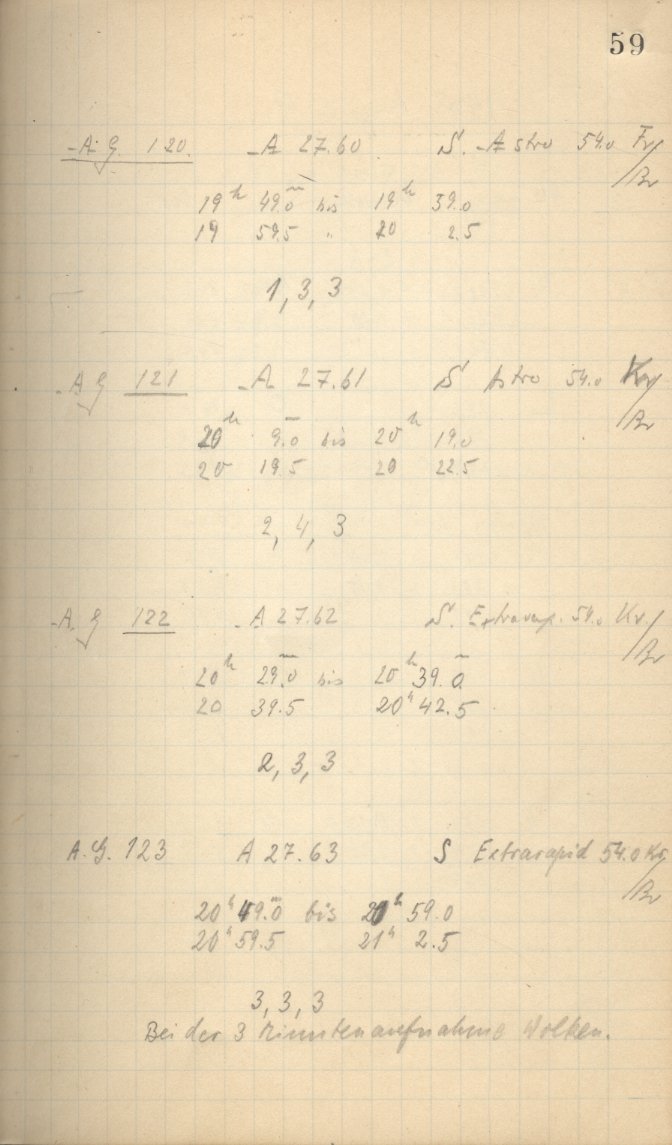 59
A.G. 120. A 27.60 S. Astro 54.0 Kr/
Br
19h 49.0m bis 19h 59.0
19 59.5 " 20 2.5
1, 3, 3
A G 121 A 27.61 S Astro 54.0 Kr/
Br
20h 9.0m bis 20h 19.0
20 19.5 20 22.5
2, 4, 3
A. G 122 A 27.62 S. Extrarap. 54.0 Kr./
Br
20h 29.0m bis 20h 39.0m
20 39.5 20h 42.5
2, 3, 3
A. G. 123 A 27.63 S Extrarapid 54.0 Kr/
Br
20h 49.0m bis 20h 59.0
20h 59.5 21h 2.5
3, 3, 3
Bei der 3 Minutenaufnahme Wolken.